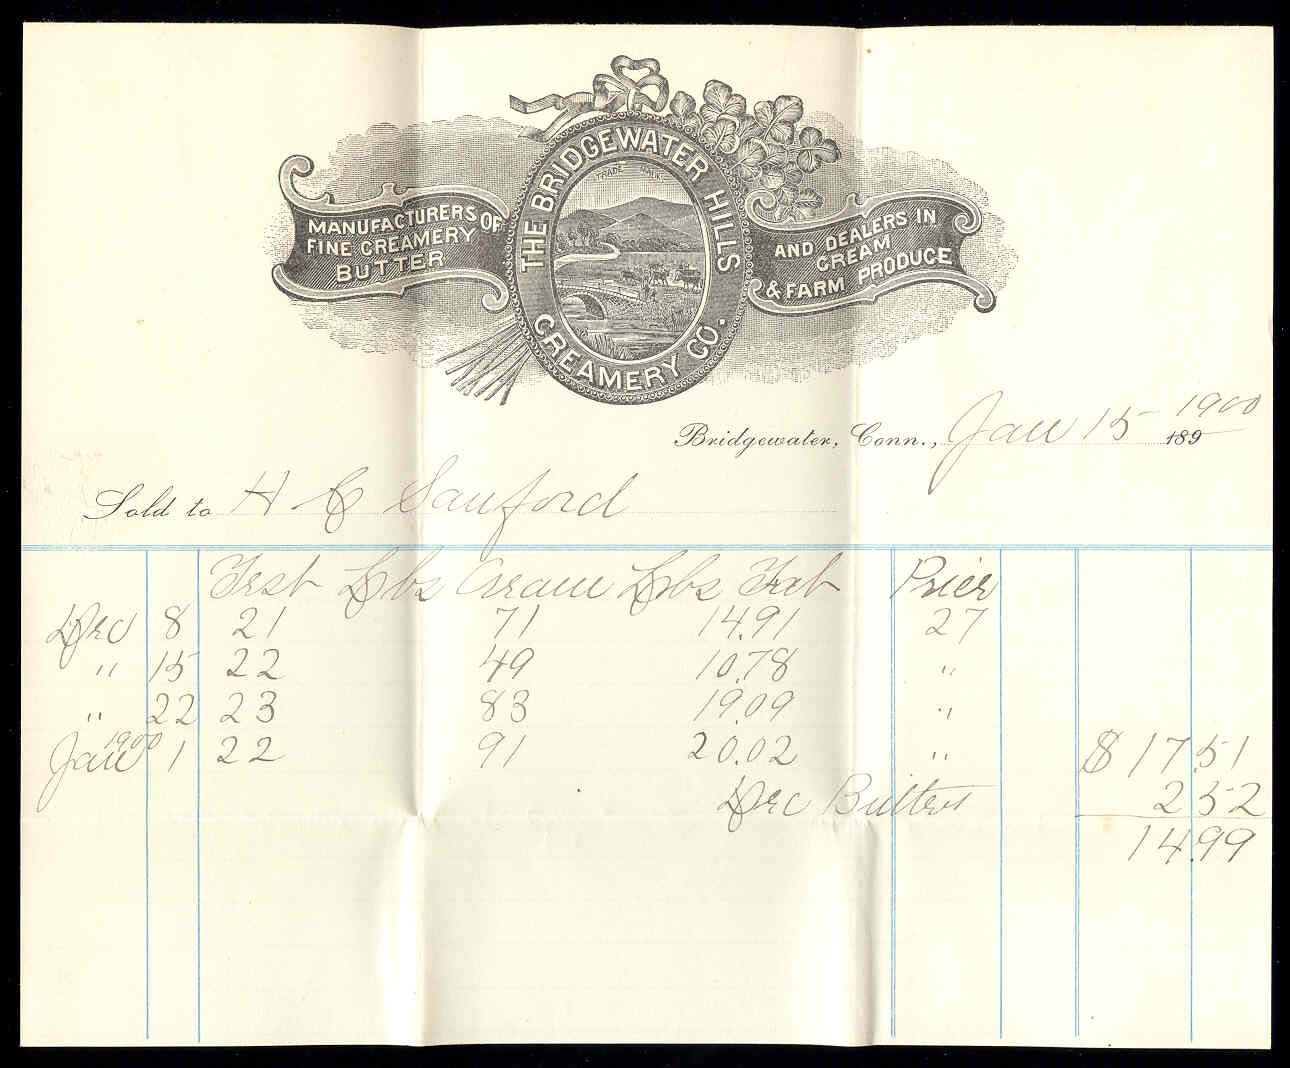 THE BRIDGEWATER HILLS
CREAMERY CO.
TRADE MARK
MANUFACTURERS OF
FINE CREAMERY
BUTTER
AND DEALERS IN
CREAM
& FARM PRODUCE
Bridgewater, Conn., Jan 15 1900 189
Sold to H C Sanford
Test Lbs Cream Lbs Fat Price
Dec 8 21 71 14.91 27
" 15 22 49 10.78 "
" 22 23 83 19.09 "
Jan 1900 1 22 91 20.02 " $ 17.51
Dec Butter 2 52
14.99